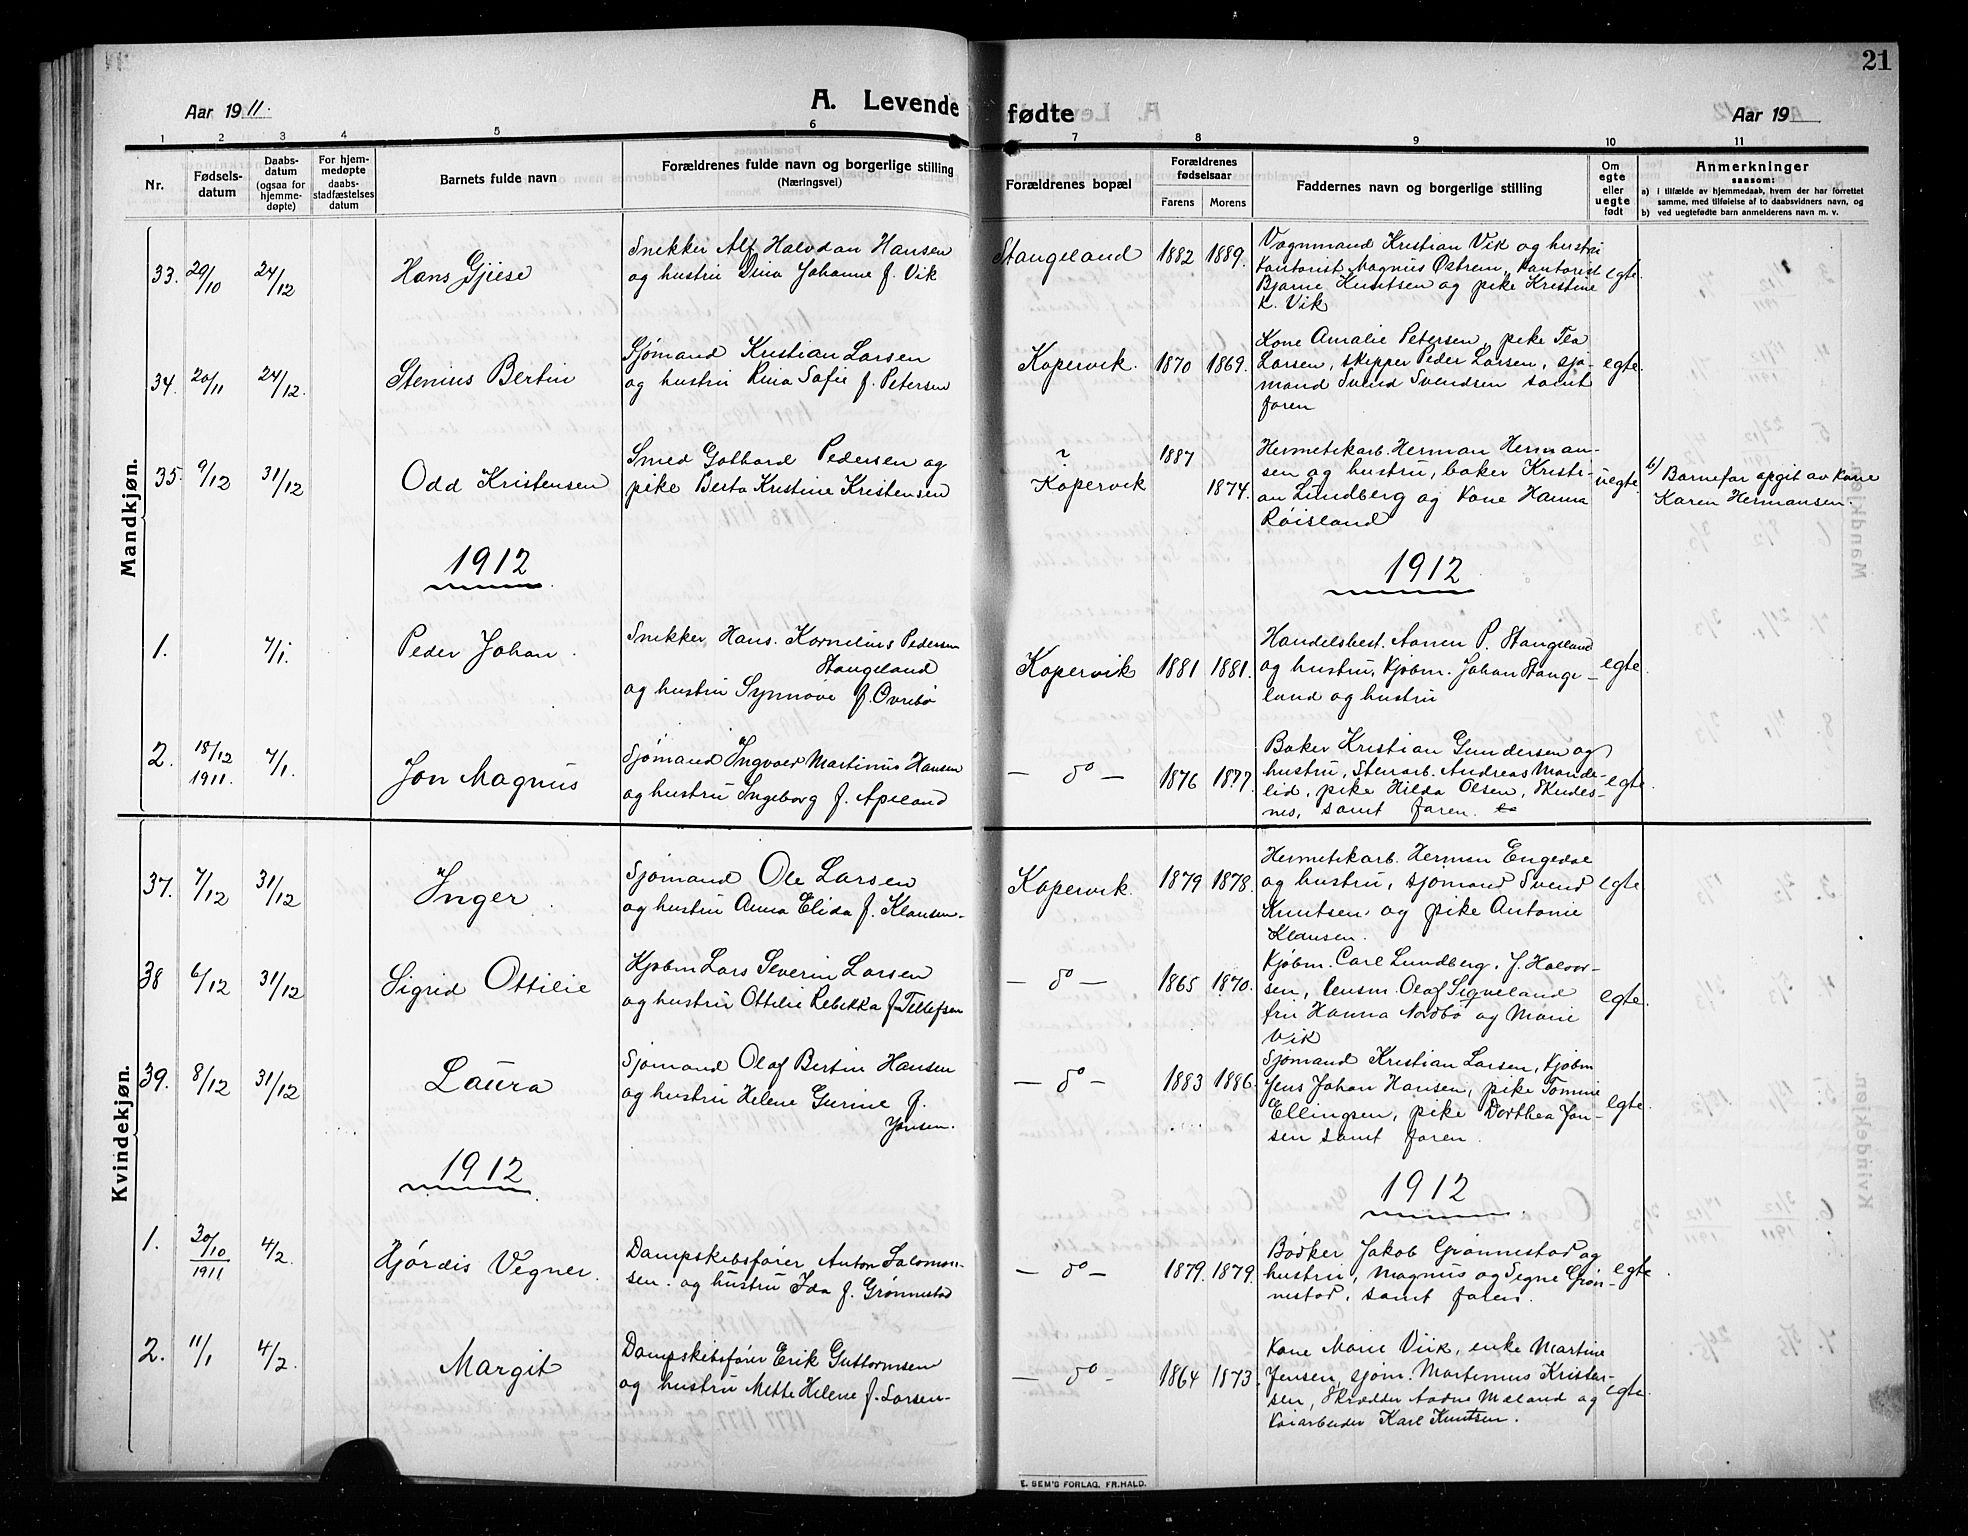 21
Aar 1911.
A. Levende fødte
Aar 19
1 2 3 4 5 6 7 8 9 10 11
Nr.
Fødsels-
datum
Daabs-
datum
(ogsaa for
hjemme-
døpte)
For hjem-
medøpte
daabs-
stadfæstelses
datum
Barnets fulde navn
Forældrenes fulde navn og borgerlige stilling
(Næringsvei)
Forældrenes bopæl
Forældrenes
fødselsaar
Farens Morens
Faddernes navn og borgerlige stilling
Om
egte
eller
uegte
født
Anmerkninger
saasom:
a) i tilfælde av hjemmedaab, hvem der har forrettet
samme, med tilføielse af to daabsvidners navn, og
b) ved uegtefødte barn anmelderens navn m. v.
Mandkjøn.
33. 29/10 24/12 Hans Gjiese
Snekker Alf Halvdan Hansen
og hustru Dina Johanne f. Vik
Stangeland 1882 1889.
Vognmand Kristian Vik og hustru
Kontorist Magnus Østrem, Kontorist
Bjarne Knutsen og pike Kristine
K. Vik
egte.
34. 20/11 24/12. Stenius Bertin
Sjømand Kristian Larsen
og hustru Rina Sofie f. Petersen
Kopervik. 1870 1869.
Kone Amalie Petersen, pike Tea
Larsen, skipper Peder Larsen, sjø-
mand Svend Svendsen samt
faren
egte.
35. 9/12 31/12 Odd Kristensen
Smed Gothard Pedersen og
pike Berta Kristine Kristensen
?
Kopervik
1887
1874.
Hermetikarb. Herman Herman-
sen og hustru, baker Kristi-
an Lundberg og Kone Hanna
Røisland
uegte.
b) Barnefar opgit av Kone
Karen Hermansen.
1912 1912
1. 7/1. Peder Johan.
Snekker, Hans. Kornelius Pedersen
Stangeland
og hustru Synnøve f. Øvrebø
Kopervik 1881 1881.
Handelsbest. Aanen P. Stangeland
og hustru, Kjøbm. Johan Stange-
land og hustru
egte.
2. 18/12 1911. 7/1. Jon Magnus
Sjømand Ingvald Martinus Hansen
og hustru Ingeborg f. Apeland
— do — 1876 1877.
Baker Kristian Gundersen og
hustru, Stenarb. Andreas Mande-
lid, pike Hilda Olsen, Skudes-
nes, samt faren.
egte.
Kvindekjøn.
37. 7/12 31/12 Inger.
Sjømand Ole Larsen
og hustru Anna Elida f. Klausen.
Kopervik. 1879 1878.
Hermetikarb. Herman Engedal
og hustru, sjømand Svend
Knutsen, og pike Antonie
Klausen.
egte
38 6/12 31/12 Sigrid Ottilie
Kjøbm Lars Severin Larsen
og hustru Ottilie Rebekka f. Tellefsen
— do — 1865 1870.
Kjøbm. Carl Lundberg, J. Halvor-
sen, Lensm. Olaf Sigveland
fru Hanna Nordbø og Marie
Vik
egte.
39. 8/12 31/12 Laura
Sjømand Olaf Bertin Hansen
og hustru Helene Gurine f.
Jonsen.
— do — 1883 1886.
Sjømand Kristian Larsen, Kjøbm
Jens Johan Hansen, pike Tomine
Ellingsen, pike Dorthea Jon-
sen samt faren.
egte.
1912 1912
1. 30/10 1911 4/2. Hjørdis Vegner.
Dampskibsfører Anton Salomon-
sen. og hustru Ida f. Grønnestad
— do — 1879. 1879.
Bødker Jakob Grønnestad og
hustru, Magnus og Signe Grøn-
nestad, samt faren.
egte.
2. 11/1 4/2. Margit
Dampskibsfører Erik Guttormsen
og hustru Mette Helene f. Larsen.
— do — 1864 1873.
Kone Marie Viik, enke Martine
Jensen, sjøm. Martinus Kristen-
sen, Skrædder Aadne Meland og
Kaiarbeider Karl Knutsen.
egte.
E. SEM'S FORLAG, FR.HALD.